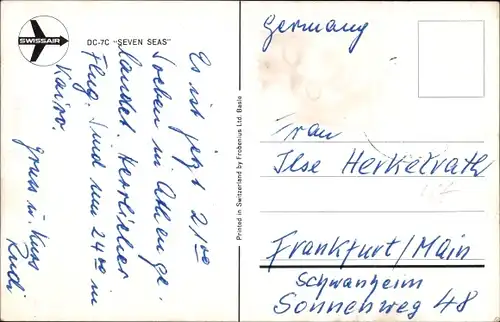 SWISSAIR
DC-7C "SEVEN SEAS"
Es ist jetzt 21,00
Soeben in Athen ge-
landet. Herrlicher
Flug. Sind um 24,00 in
Kairo.
Gruss u. Kuss
Rudi
Printed in Switzerland by Frobenius Ltd. Basle
Germany
Frau
Ilse Herkelrath
Frankfurt/Main
Schwanheim
Sonnenweg 48